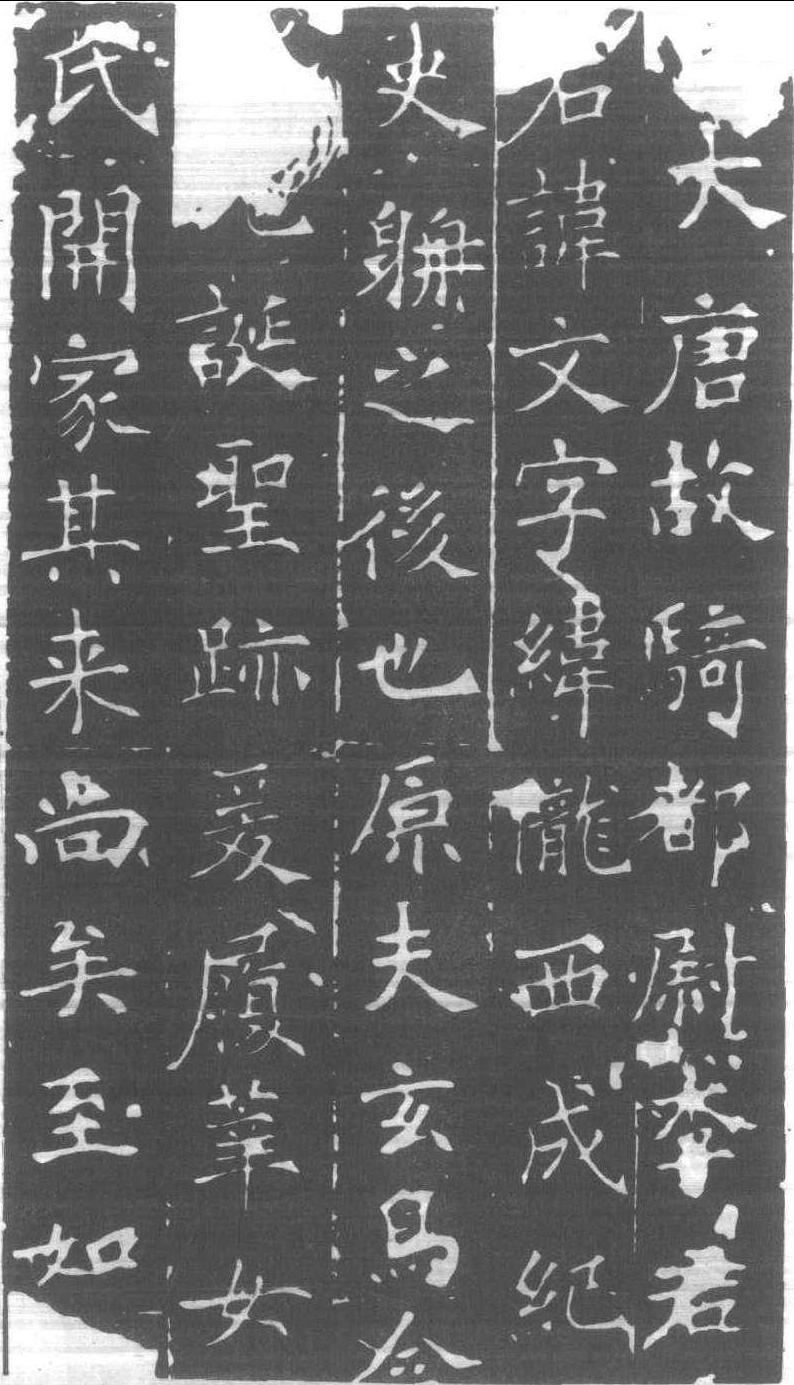 大唐故騎都尉李君
君諱文字緯隴西成紀
史聃之後也原夫玄鳥
誕聖跡爰履葦女
氏開家其来尚矣至如